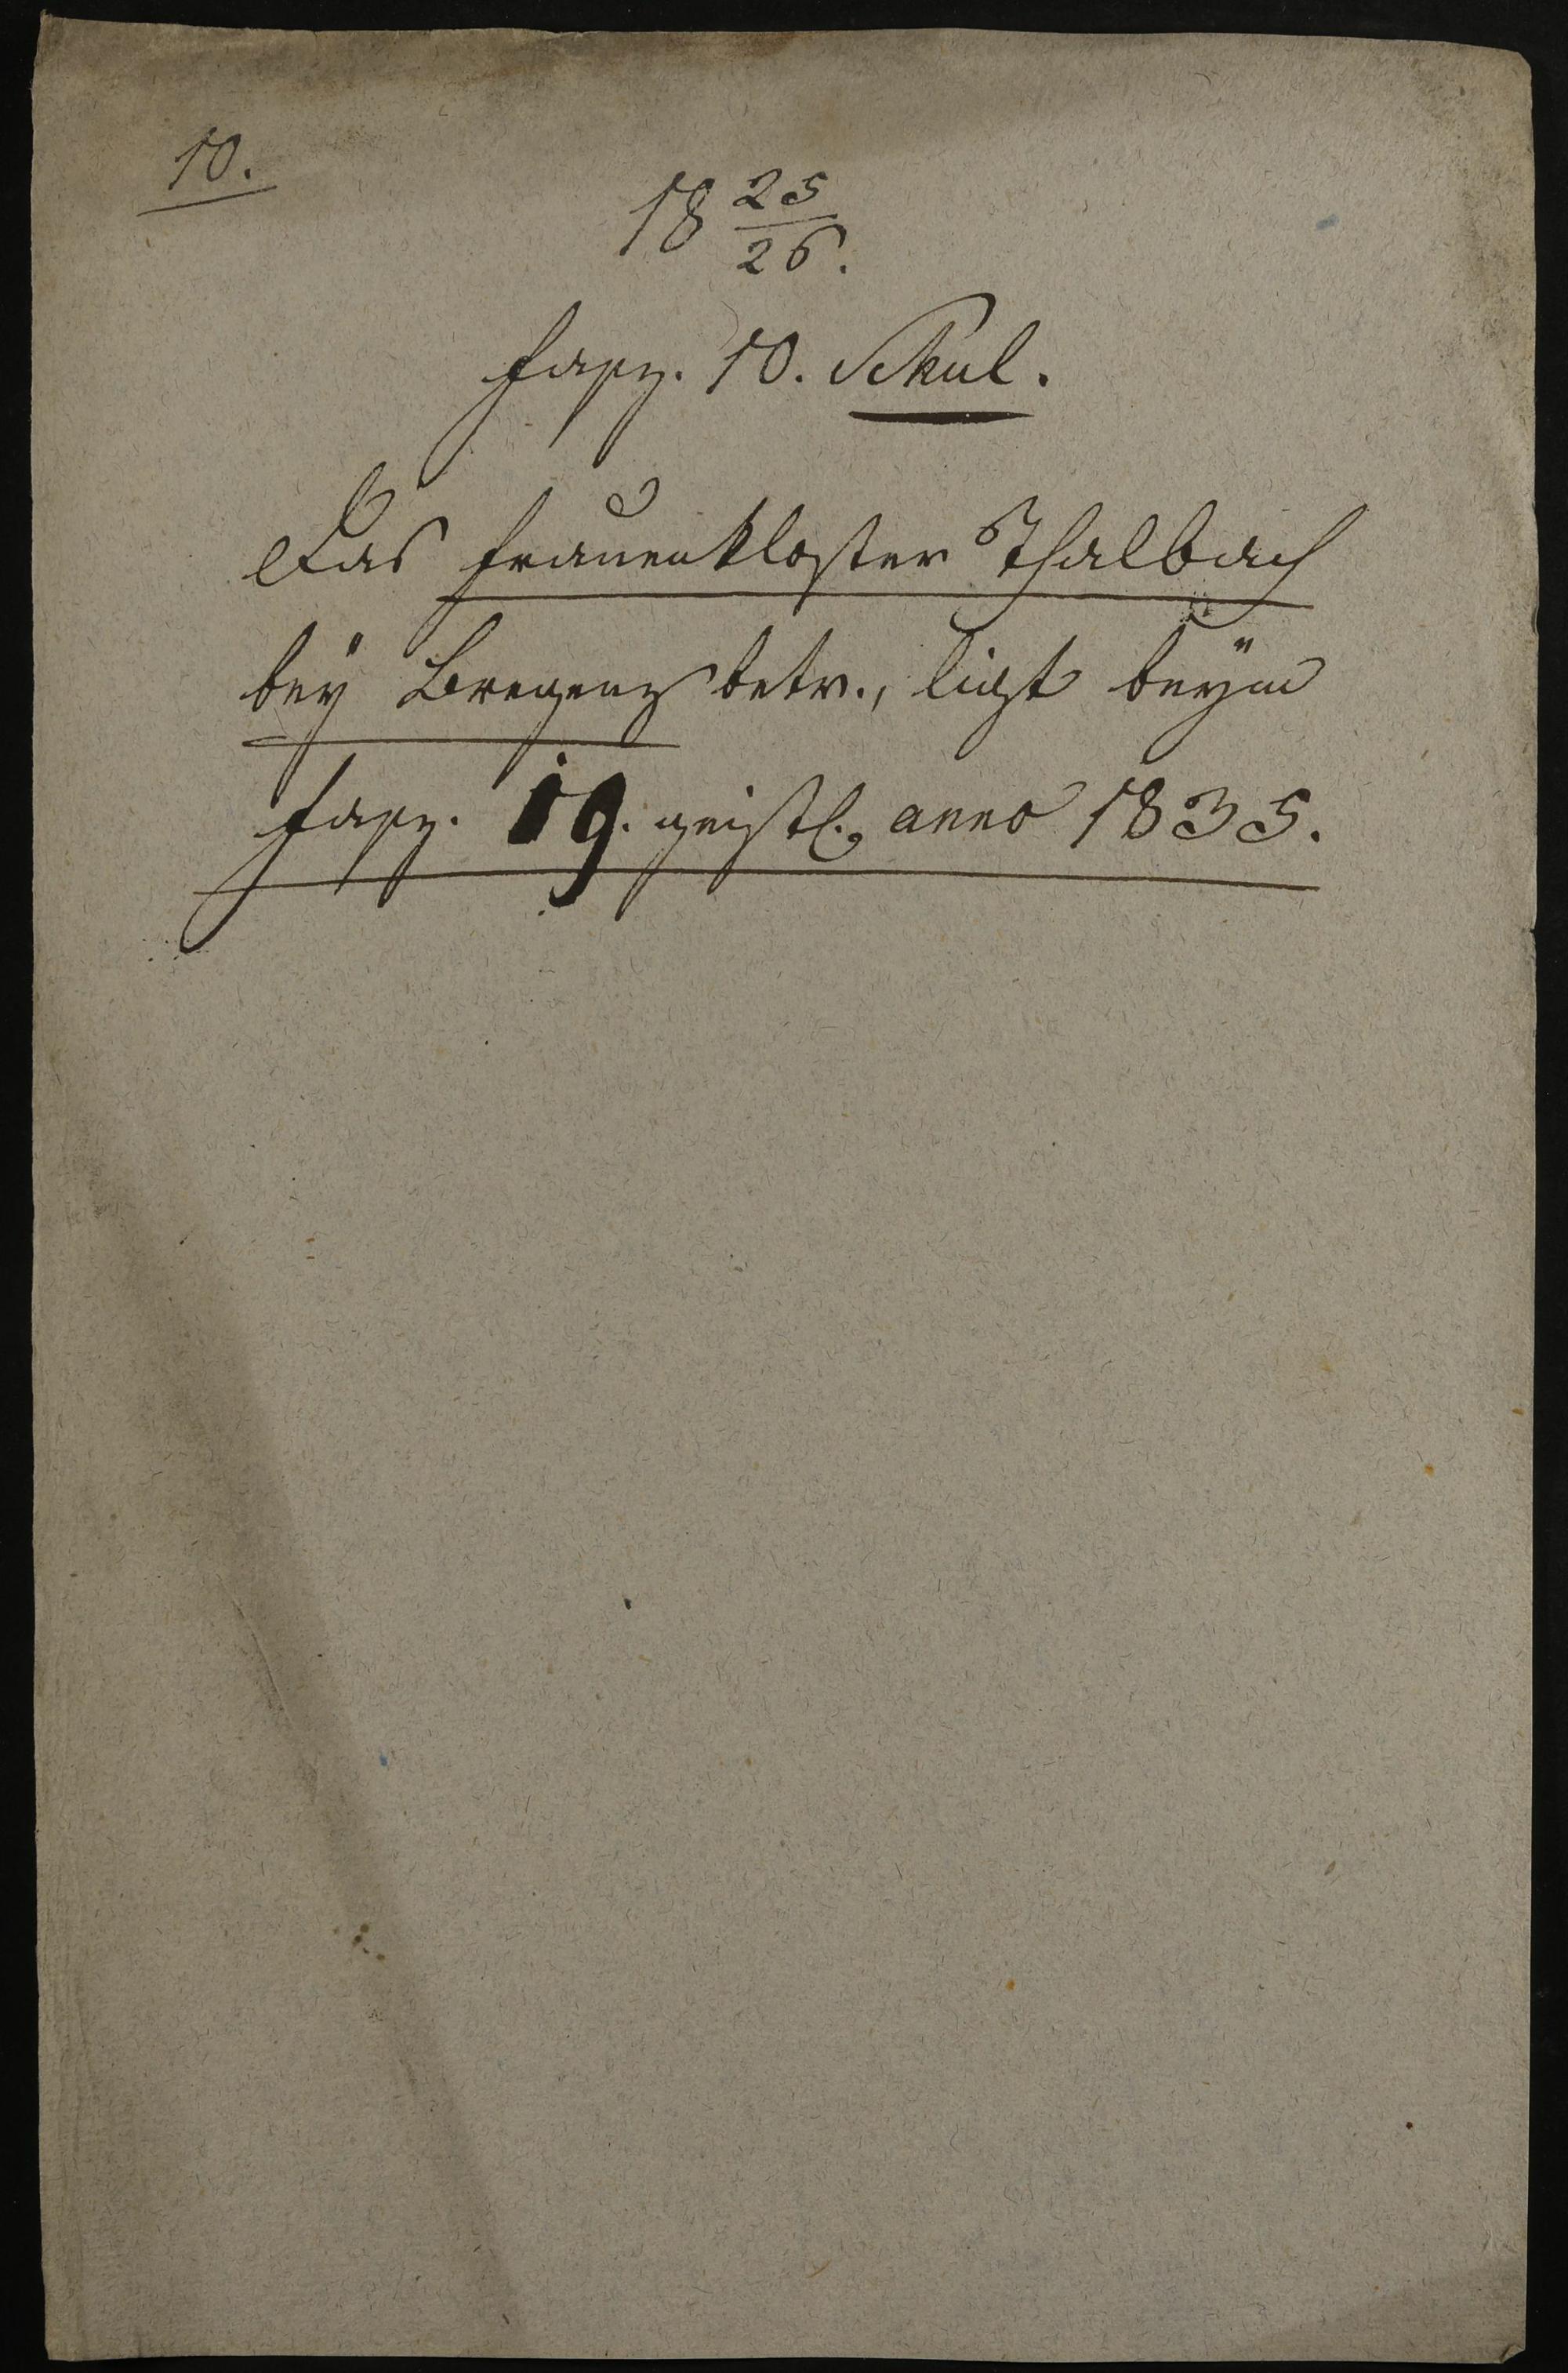 10.
18 25/26.
Fasz. 10. Schul.
Das Frauenkloster Thalbach
bey Bregenz betr., ligt beym
Fasz. 19. geistl. anno 1835.